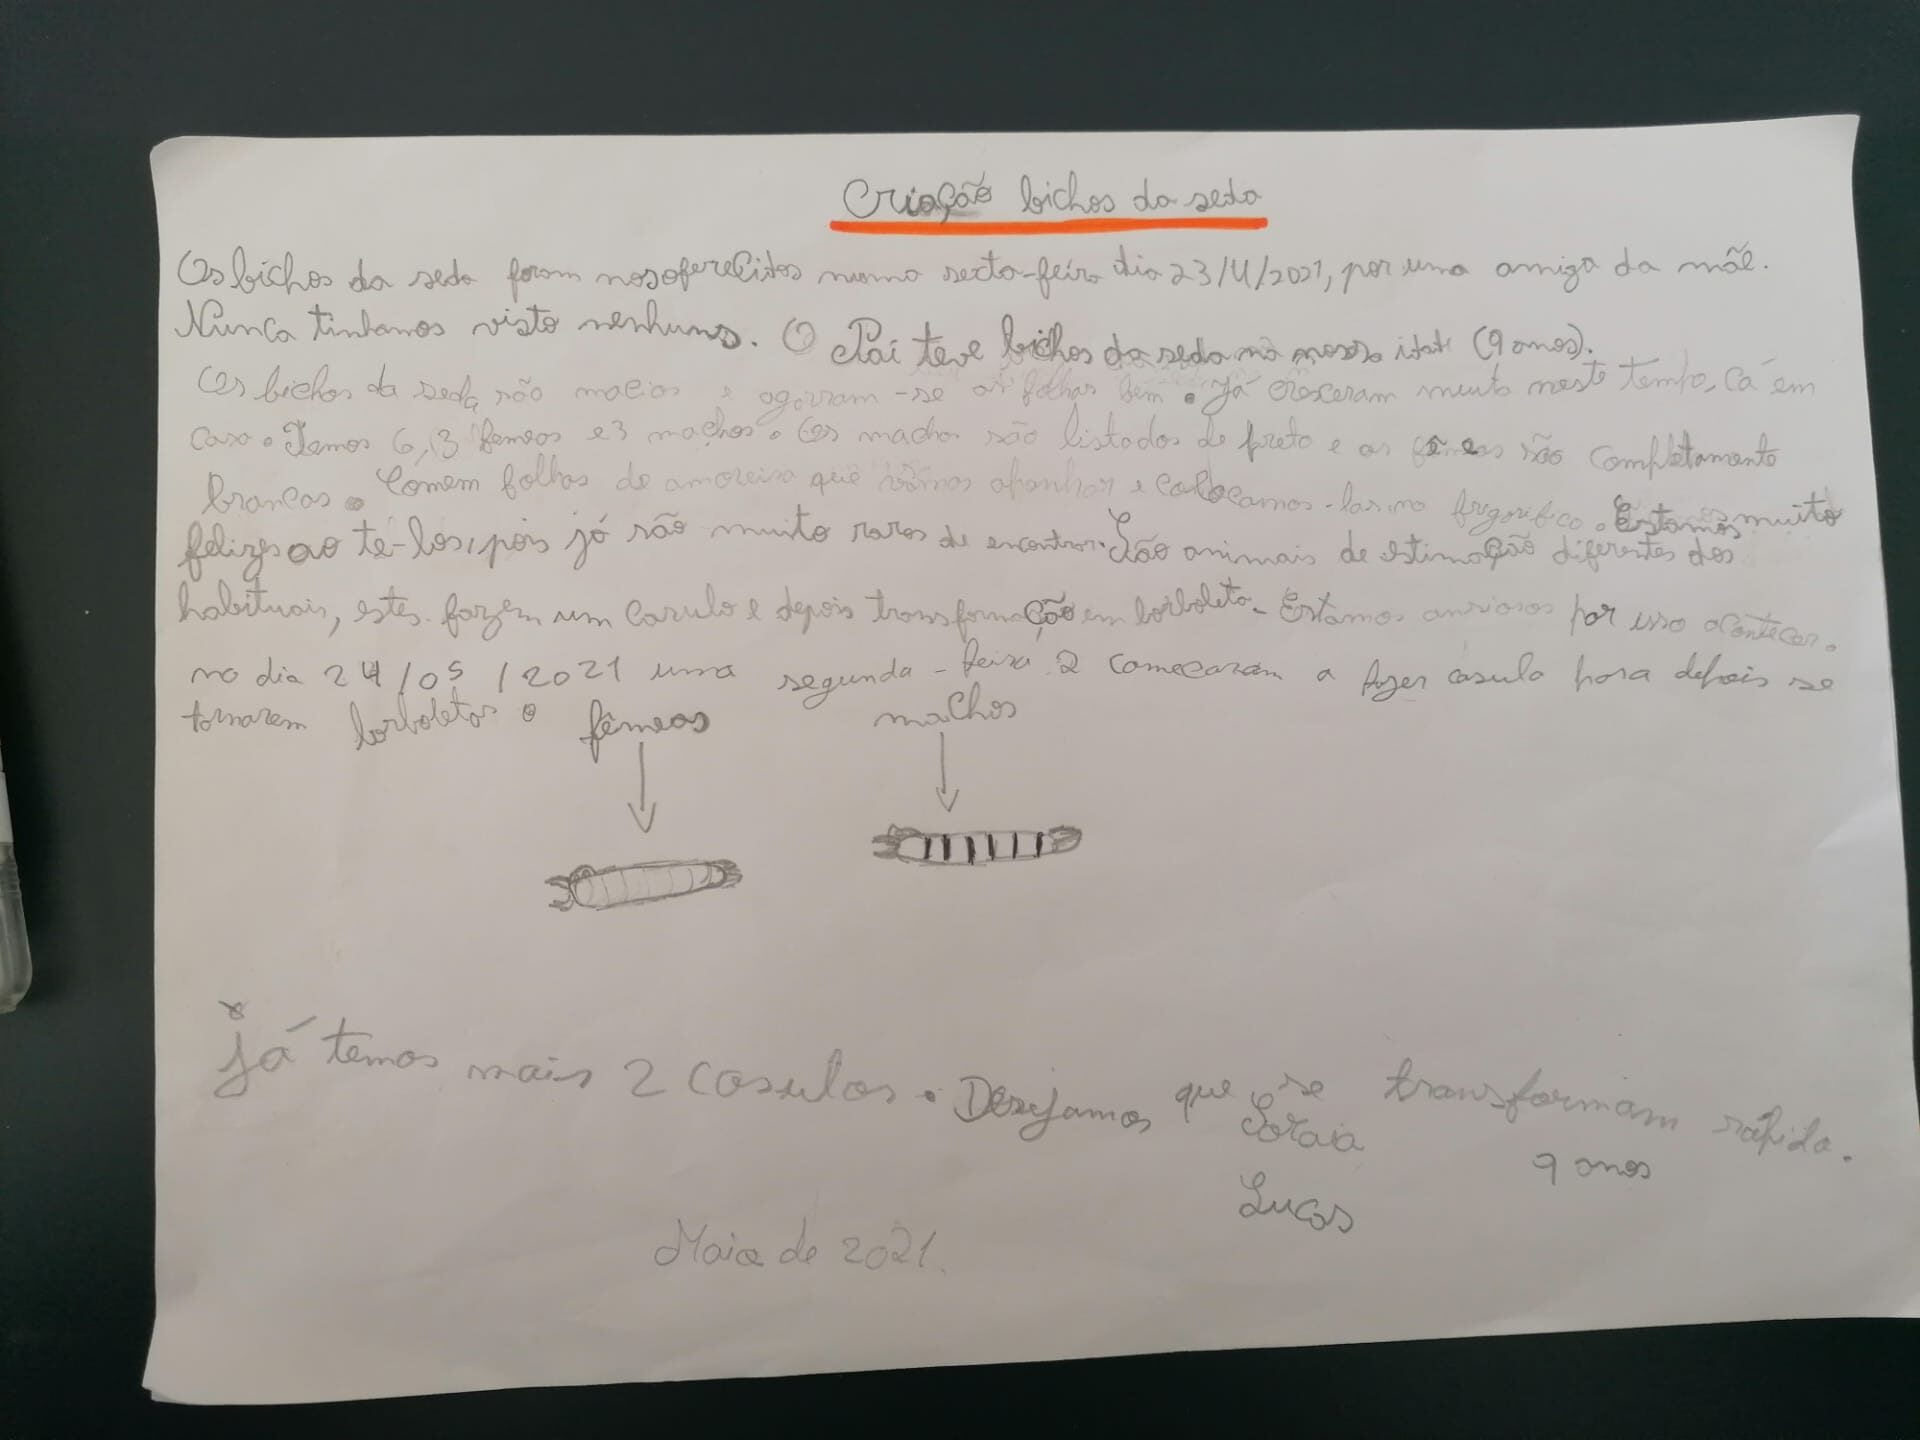 Criação bichos da seda
Os bichos da seda foram nos oferecidos numa sexta-feira dia 23/4/2021, por uma amiga da mãe.
Nunca tinhamos visto nenhuns. O Pai teve bichos da seda na nossa idade (9 anos).
Os bichos da seda são macios e agarram-se às folhas bem. Já cresceram muito neste tempo, cá em
casa. Temos 6, 3 fêmeas e 3 machos. Os machos são listados de preto e as fêmeas são completamente
brancas. Comem folhas de amoreira que vamos apanhar e colocamos-las no frigorifico. Estamos muito
felizes ao tê-los, pois já são muito raros de encontrar. São animais de estimação diferentes dos
habituais, estes fazem um casulo e depois transformação em borboleta. Estamos ansiosos por isso acontecer.
no dia 24/05/2021 uma segunda-feira 2 começaram a fazer casulo para depois se
tornarem borboletas.
fêmeas machos
Já temos mais 2 casulos. Desejamos que se transformam rápido.
Soraia
9 anos
Lucas
Maio de 2021.